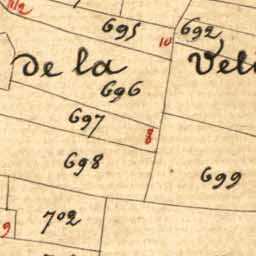 695
692
10
de la
696
697
8
698
699
702
9